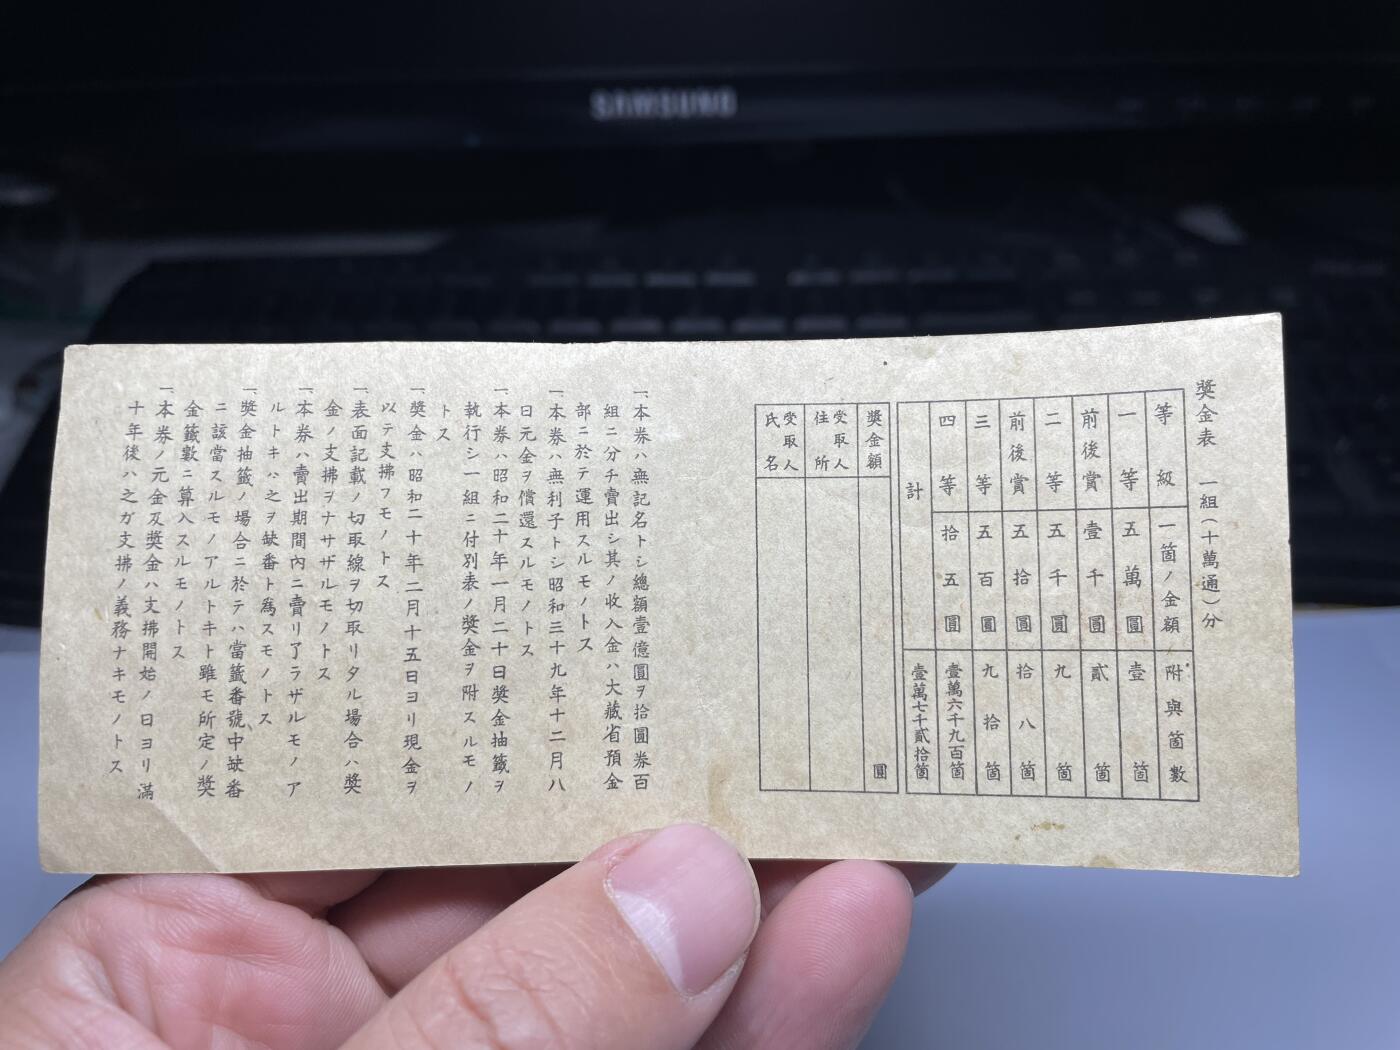 SAMSUNG
奬金表 一組(十萬通)分
等級 一箇ノ金額 附與箇數
一等 五萬圓 壹箇
前後賞 壹千圓 貳箇
二等 五千圓 九箇
前後賞 五拾圓 拾八箇
三等 五百圓 九拾箇
四等 拾五圓 壹萬六千九百箇
計 壹萬七千貳拾箇
奬金額 圓
受取人住所
受取人氏名
一、本券ハ無記名トシ總額壹億圓ヲ拾圓券百
組ニ分チ賣出シ其ノ收入金ハ大藏省預金
部ニ於テ運用スルモノトス
一、本券ハ無利子トシ昭和三十九年十二月八
日元金ヲ償還スルモノトス
一、本券ハ昭和二十年一月二十日奬金抽籤ヲ
執行シ一組ニ付別表ノ奬金ヲ附スルモノ
トス
一、奬金ハ昭和二十年二月十五日ヨリ現金ヲ
以テ支拂フモノトス
一、表面記載ノ切取線ヲ切取リタル場合ハ奬
金ノ支拂ヲナサザルモノトス
一、本券ハ賣出期間內ニ賣リ了ラザルモノア
ルトキハ之ヲ缺番ト爲スモノトス
一、奬金抽籤ノ場合ニ於テハ當籤番號中缺番
ニ該當スルモノアルトキト雖モ所定ノ奬
金籤數ニ算入スルモノトス
一、本券ノ元金及奬金ハ支拂開始ノ日ヨリ滿
十年後ハ之ガ支拂ノ義務ナキモノトス